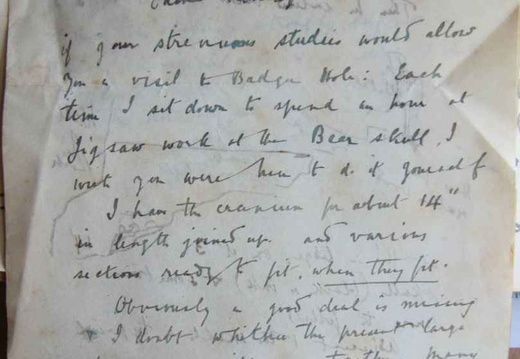 if your strenuous studies would allow
you a visit to Badger Hole: Each
time I sit down to spend an hour at
Jigsaw work at the Bear skull, I
wish you were here to do it yourself
I have the cranium for about 14"
in length joined up and various
sections ready to fit, when they fit.
Obviously a good deal is missing
I doubt whether the present large
together many